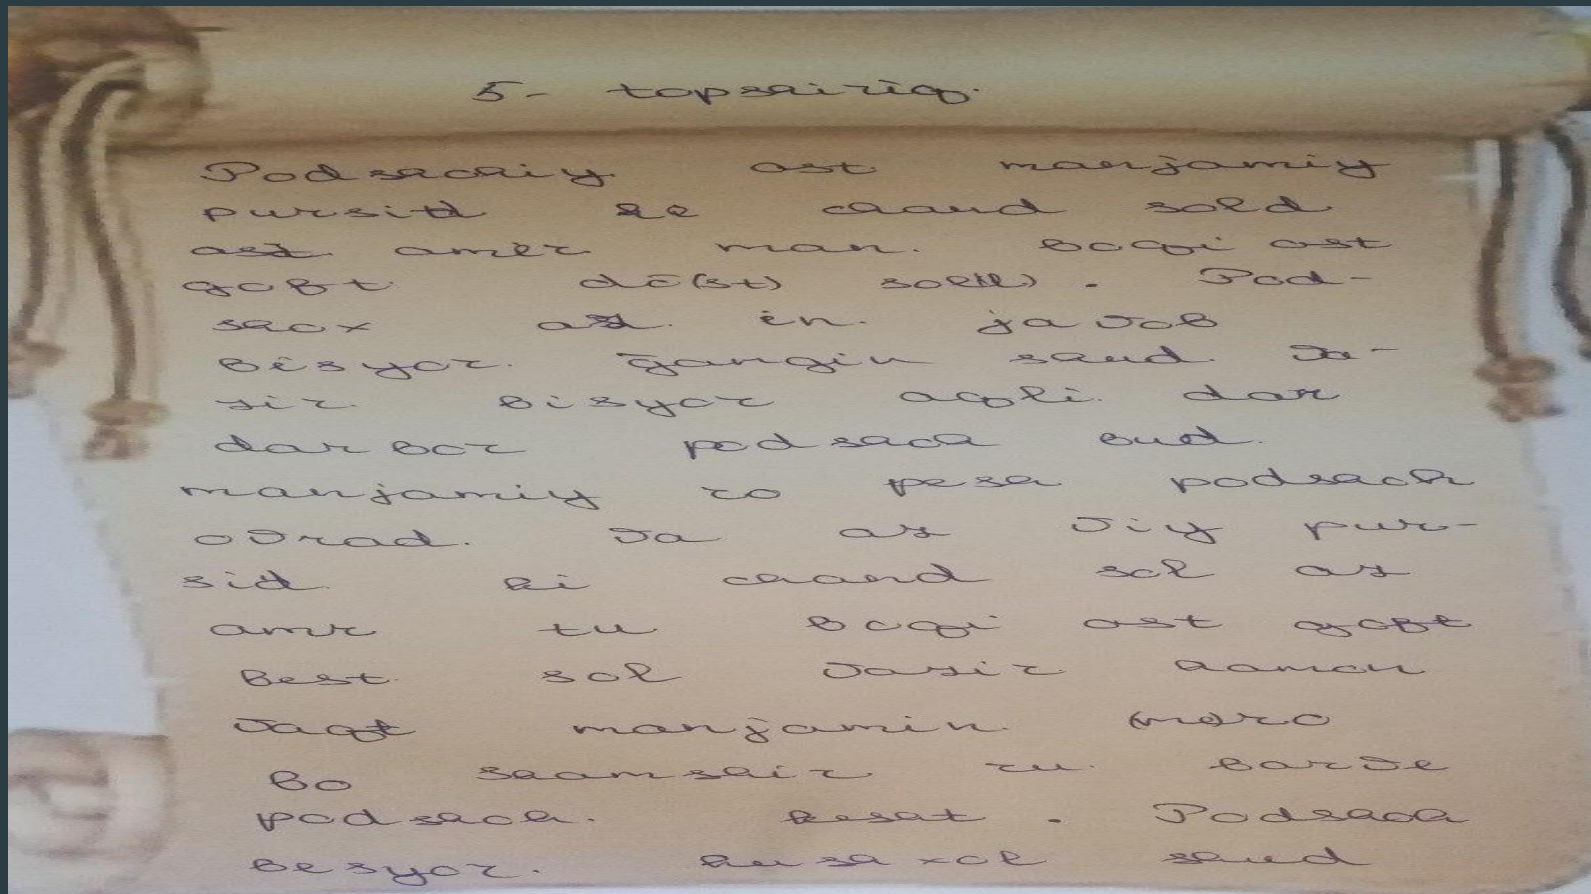 5- topshiriq.
Podshohiy ast manjamiy
pursidt ke chand sold
ast amër man. boqi ast
goft dō(st) sol(l). Pod-
shox az ën javob
bësyor. ğangin shud. Va-
zir bisyor aqli. dar
darbor podshoh bud.
manjamiy ro pesh podshoh
ovrad. Va az viy pur-
sid ki chand sol az
amr tu boqi ast goft
best sol vazir hamon
vaqt manjamin (mero
bo shamshir ru barve
podshoh. keshat. Podshoh
besyor. hushaxol shud